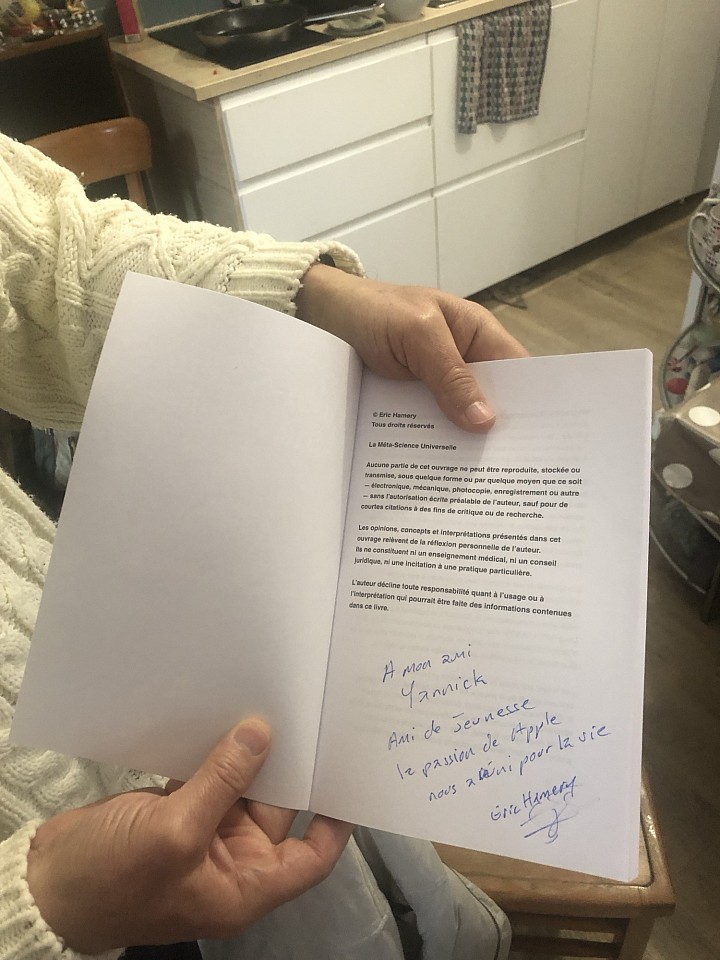 © Eric Hamery
Tous droits réservés
La Méta-Science Universelle
Aucune partie de cet ouvrage ne peut être reproduite, stockée ou
transmise, sous quelque forme ou par quelque moyen que ce soit
— électronique, mécanique, photocopie, enregistrement ou autre
— sans l'autorisation écrite préalable de l'auteur, sauf pour de
courtes citations à des fins de critique ou de recherche.
Les opinions, concepts et interprétations présentés dans cet
ouvrage relèvent de la réflexion personnelle de l'auteur.
Ils ne constituent ni un enseignement médical, ni un conseil
juridique, ni une incitation à une pratique particulière.
L'auteur décline toute responsabilité quant à l'usage ou à
l'interprétation qui pourrait être faite des informations contenues
dans ce livre.
A mon ami
Yannick
Ami de Jeunesse
la passion de Apple
nous a réuni pour la vie
Eric Hamery